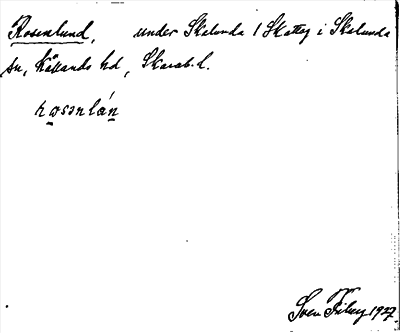 Rosenlund, under Skalunda 1 Skatteg i Skalunda
sn, Kållands hd, Skarab. l.
rosənlán
Sven Fileny 1927.